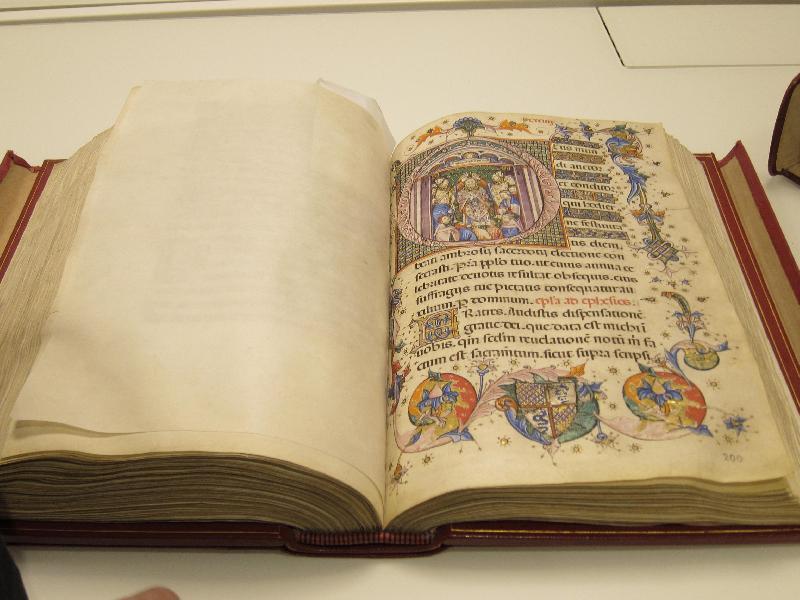 tus mun
di auctor
et conditor
qui hodier
ne festivita
tis diem.
beati ambrosij sacerdotis electione con
secrasti. pra pplo tuo. ut cuius annua ce
lebritate devotis exultat obsequiis. eius
suffragijs tue pietatis consequatur au
xilium. P dominum. epla ad ephesios.
Ratres. Audistis dispensatione
gratie dei. que data est michi i
vobis. qm scdm revelatione notu m fa
ctum est sacramtum. sicut supra scripsi
200